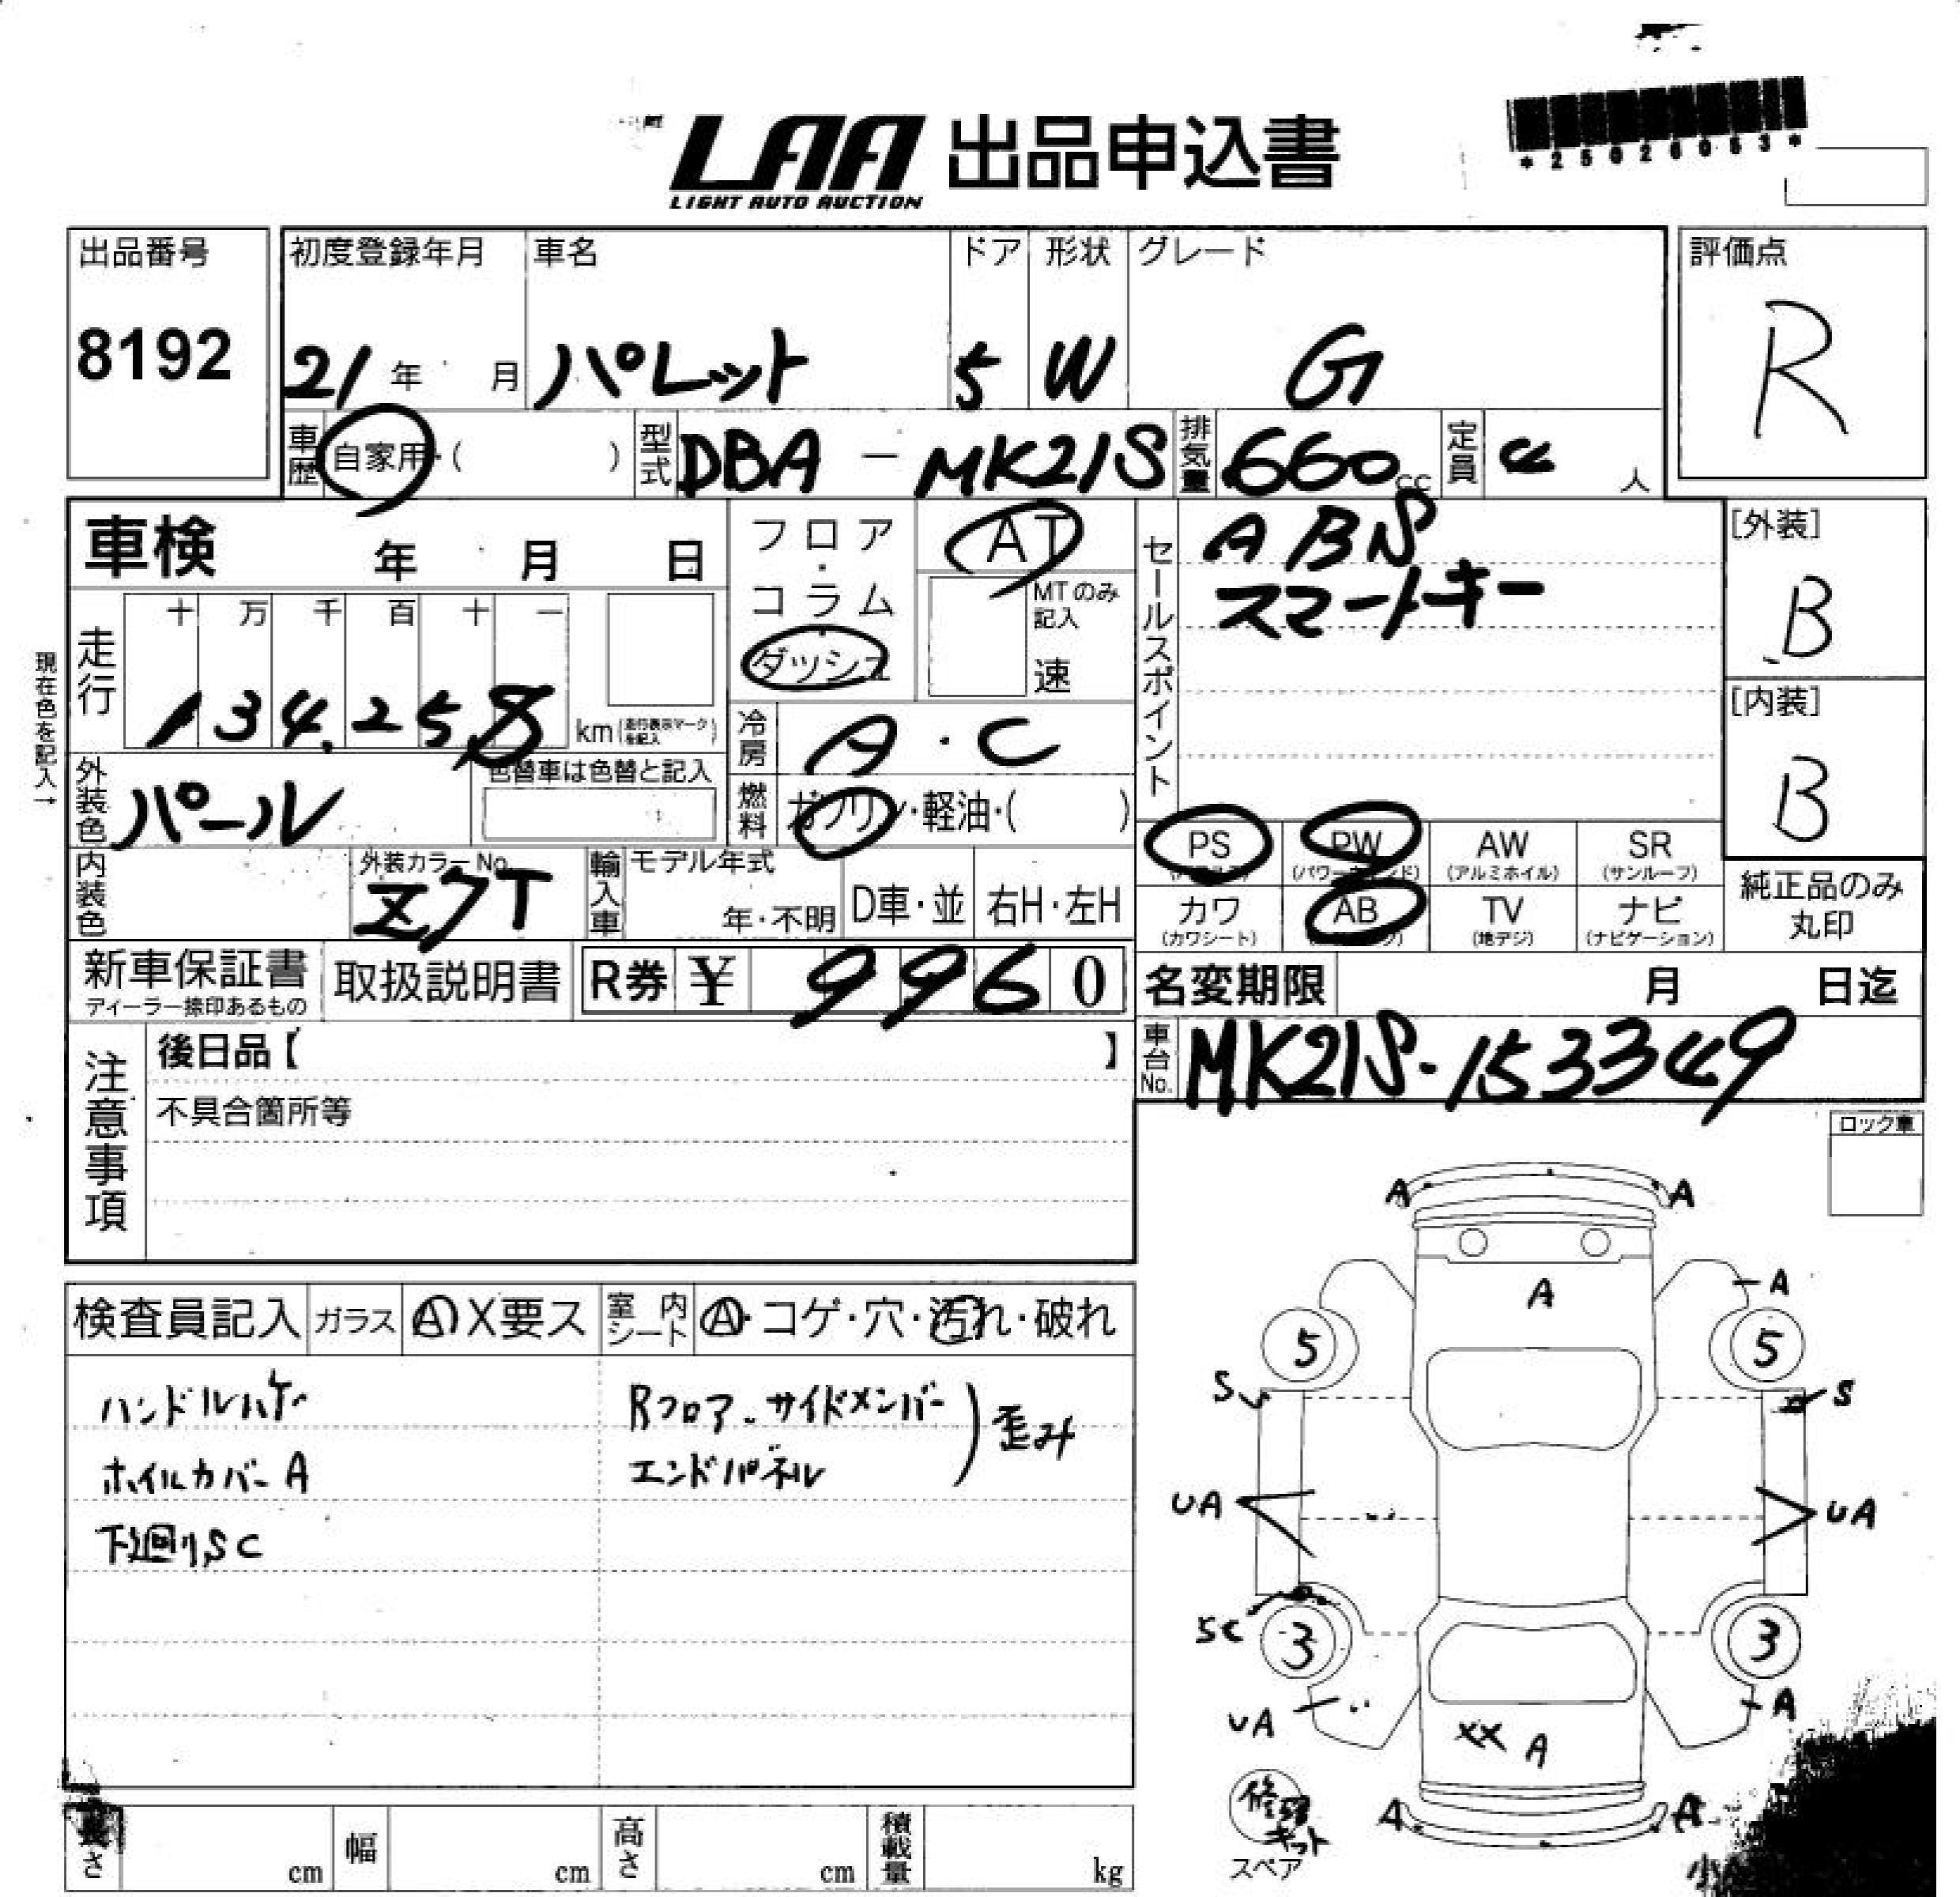 *25020053*
LAA 出品申込書
LIGHT AUTO AUCTION
出品番号 初度登録年月 車名 ドア 形状 グレード 評価点
8192 21 年 月 パレット 5 W G R
車歴 自家用・( ) 型式 DBA - MK21S 排気量 660cc 定員 4 人
車検 年 月 日
フロア・コラム・ダッシュ
AT
MTのみ記入
速
セールスポイント
ABS
スマートキー
[外装]
B
[内装]
B
現在色を記入→
走行 十 万 千 百 十 一
134,258 km(走行表示マークを記入)
冷房 A・C
燃料 ガソリン・軽油・( )
外装色 パール 色替車は色替と記入
内装色 外装カラーNo. Z7T
輸入車 モデル年式 年・不明 D車・並 右H・左H
PS PW (パワーウィンド) AW (アルミホイル) SR (サンルーフ)
カワ (カワシート) AB TV (地デジ) ナビ (ナビゲーション)
純正品のみ
丸印
新車保証書 ディーラー捺印あるもの 取扱説明書 R券 ¥ 9960
名変期限 月 日迄
車台No. MK21S-153349
注意事項
後日品【 】
不具合箇所等
ロック車
検査員記入 ガラス A X要ス 室内シート A・コゲ・穴・汚れ・破れ
ハンドルハゲ Rフロア、サイドメンバー
ホイルカバーA エンドパネル ) 歪み
下廻りSC
A A
A A
5 5
S S
UA UA
SC 3 3
UA A
XX A
A A
修理キット
スペア
長さ cm 幅 cm 高さ cm 積載量 kg